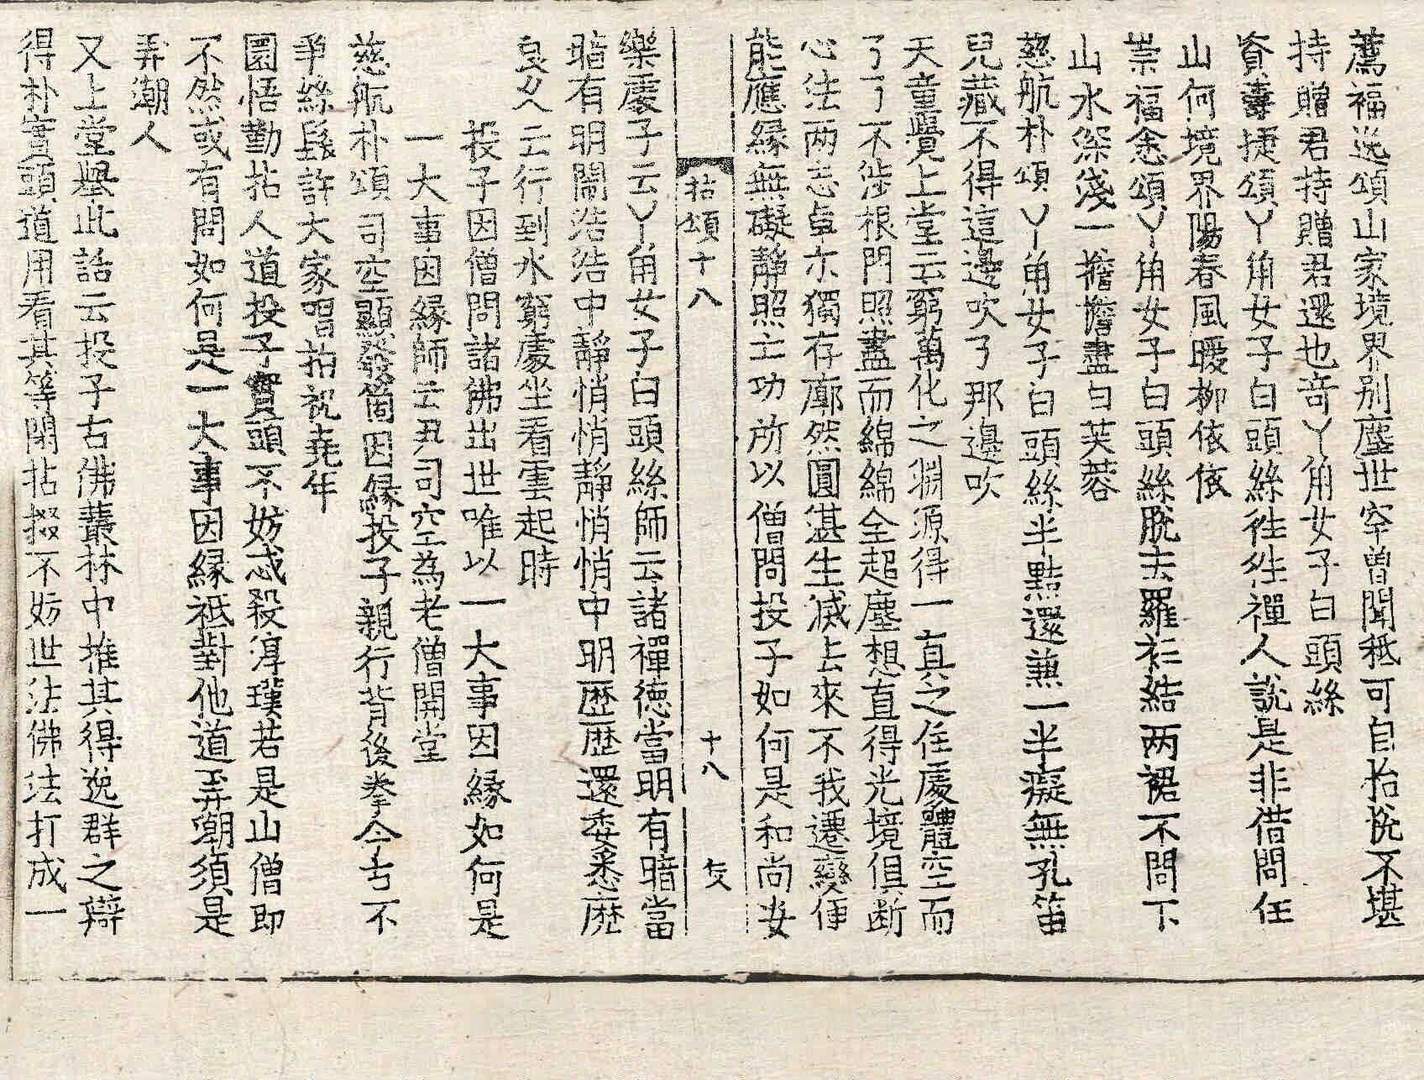 薦福逸頌山家境界別塵世罕曽聞秪可自怡恱不堪
持贈君持贈君還也竒丫角女子白頭絲
資壽捷頌丫角女子白頭絲徃徃禪人說是非借問任
山何境界陽春風暖柳依依
崇福悆頌丫角女子白頭絲脫去羅衫結两裙不問下
山水深浅一擔擔盡白芙蓉
慈航朴頌丫角女子白頭絲半㸃還兼一半癡無孔笛
兒藏不得這邊吹了那邊吹
天童覺上堂云窮萬化之淵源得一真之住處體空而
了了不渉根門照盡而綿綿全超塵想直得光境俱断
心法两忘卓尓獨存廓然圓湛生滅去來不我遷變便
能應縁無礙静照亡功所以僧問投子如何是和尚妛
拈頌十八
十八
樂處子云丫角女子白頭絲師云諸禪德當明有暗當
暗有明鬧浩浩中静悄悄静悄悄中明歴歴還委悉麽
良久云行到水窮處坐看雲起時
投子因僧問諸佛出世唯以一大事因縁如何是
一大事因縁師云尹司空為老僧開堂
慈航朴頌司空顯發箇因縁投子親行背後拳今古不
爭絲髮許大家唱拍祝尭年
圜悟勤拈人道投子實頭不妨忒殺淳璞若是山僧即
不然或有問如何是一大事因縁秪對他道弄潮須是
弄潮人
又上堂舉此話云投子古佛叢林中推其得逸群之辯
得朴實頭道用看其等閑拈掇不妨世法佛法打成一